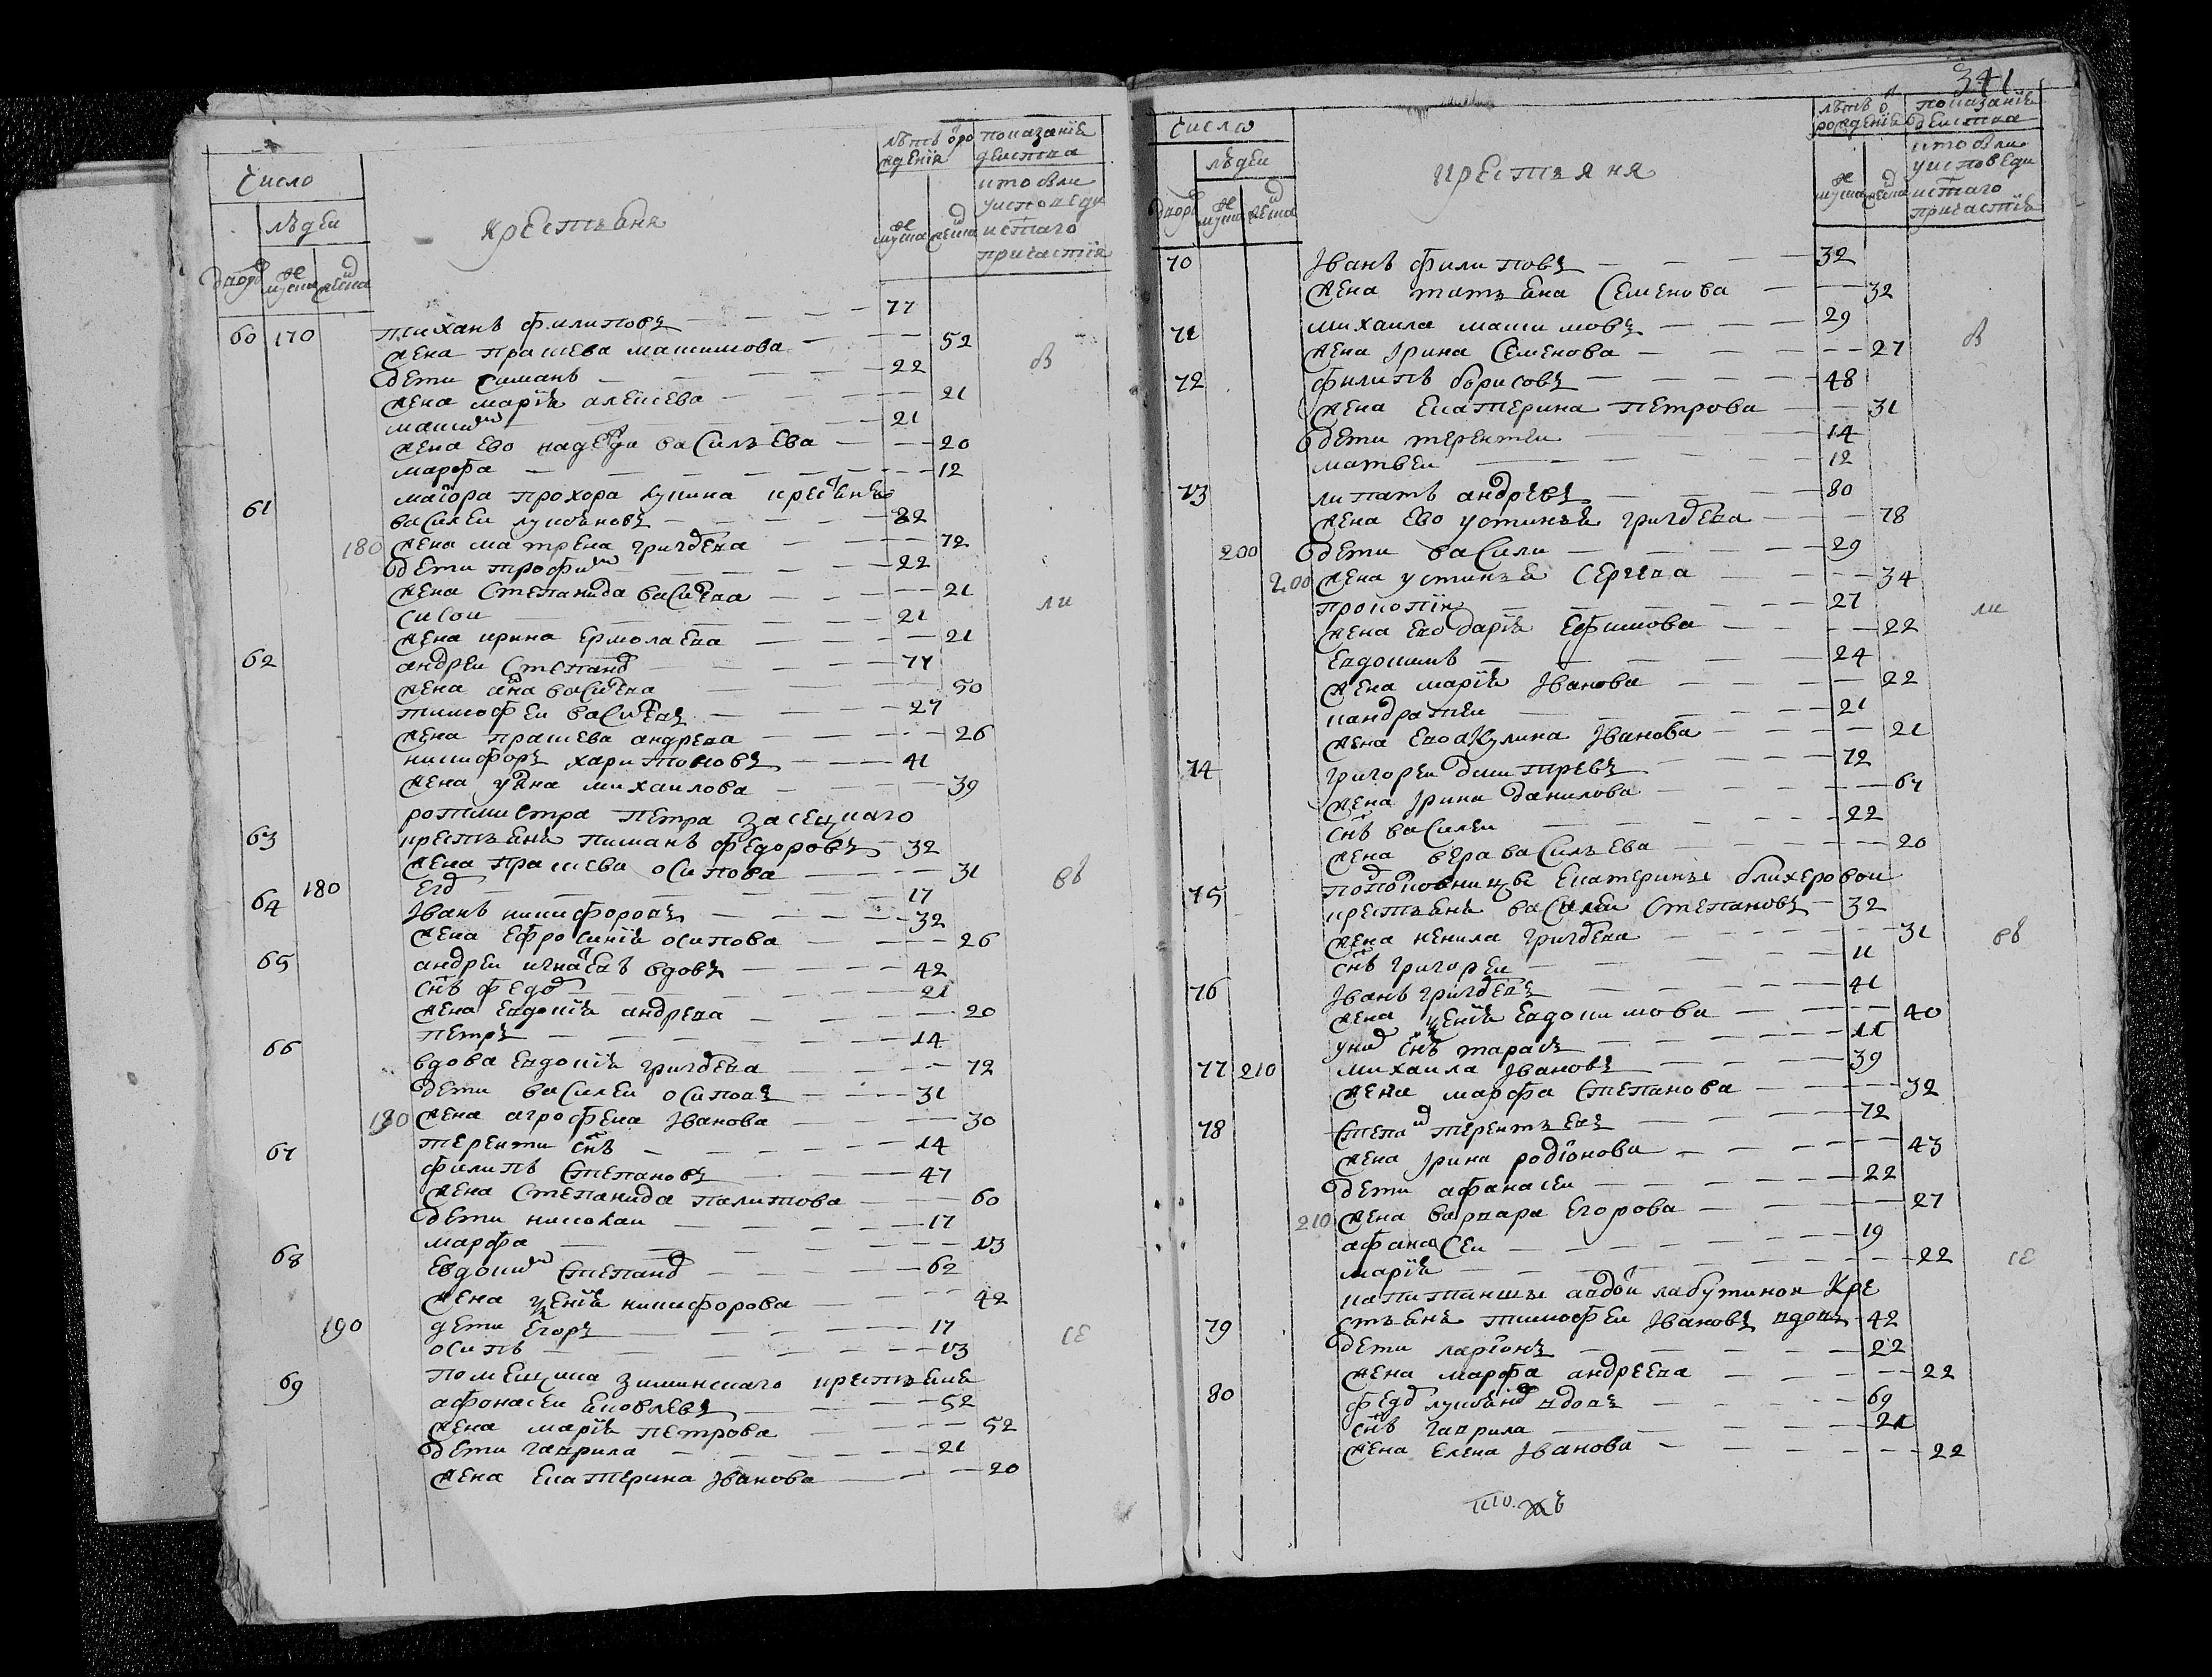 число
людеи
дворъ мужеска женска
крестьяня
лѣтъ о рождения
мужеска женска
показание деиства
кто были у исповеди и стаго причастия
60 170 тиханъ филиповъ 77
жена прасковя максимова 52
дети симанъ 22
жена мария алексева 21
максим 21
жена ево надежда васильева 20
марфа 12
маиора прохора крестьяне
61 василеи лукьяновъ 82
180 жена матрена григорева 72
дети трофим 22
жена степанида василева 21
сисои 21
жена ирина ермолаева 21
62 андреи степанов 77
жена анна василева 50
тимофеи василевъ 27
жена прасковя андрева 26
никифоръ харитоновъ 41
жена михаилова 39
ротмистра петра засецкаго
63 крестьяня федоровъ 32
жена прасковя осипова 31
180 егор 17
64 иванъ никифоровъ 32
жена ефросиния осипова 26
65 андреи игнатевъ вдовъ 42
снъ федор 21
жена евдокия андрева 20
петръ 14
66 вдова евдокия григорева 72
дети василеи осиповъ 31
180 жена агрофена иванова 30
терентии снъ 14
67 филипъ степановъ 47
жена степанида 60
дети николаи 17
марфа 13
68 евдоким степанов 62
жена ксения никифорова 42
190 дети егоръ 17
осипъ 13
помещика зиминскаго крестьяня
69 афонасеи яковлевъ 52
жена мария петрова 52
дети гаврила 21
жена екатерина иванова 20
в
ли
въ
се
341
число
людеи
дворъ мужеска женска
крестьяня
лѣтъ о рождение
мужеска женска
показание деиства
кто были у исповеди и стаго причастия
70 иванъ филиповъ 32
жена татьяна семенова 32
71 михаила максимовъ 29
жена ирина семенова 27
72 филипъ борисовъ 48
жена екатерина петрова 31
дети терентеи 14
матвеи 12
73 липатъ андревъ 80
жена ево устинья григорева 78
200 дети васили 29
200 жена устинья сергева 34
прокопия 27
жена ево дария ефимова 22
евдокимъ 24
жена мария иванова 22
кандратеи 21
жена ево акулина иванова 21
74 григореи дмитревъ 72
жена ирина данилова 67
снъ василеи 22
жена вера васильева 20
подполковницы екатерины блихеровои
75 крестьяня василеи степановъ 32
жена ненила григорева 31
снъ григореи 11
76 иванъ григоревъ 41
жена ксения евдокимова 40
у них снъ тарасъ 11
77 210 михаила ивановъ 39
жена марфа степанова 32
78 степан терентьевъ 72
жена ирина родионова 43
дети афанасеи 22
210 жена варвара егорова 27
афанасеи 19
мария 22
капитанши авдои лабутинои кре
79 стьяня тимофеи ивановъ вдовъ 42
дети ларионъ 22
жена марфа андреева 22
80 федор лукьянов вдовъ 69
снъ гаврила 21
жена елена иванова 22
в
ли
въ
се